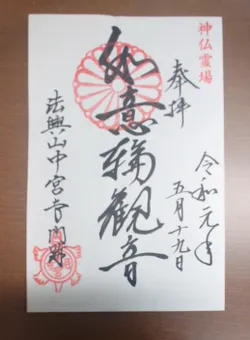 神仏霊場
奉拝
令和元年
五月十九日
如意輪觀音
法興山中宮寺門跡